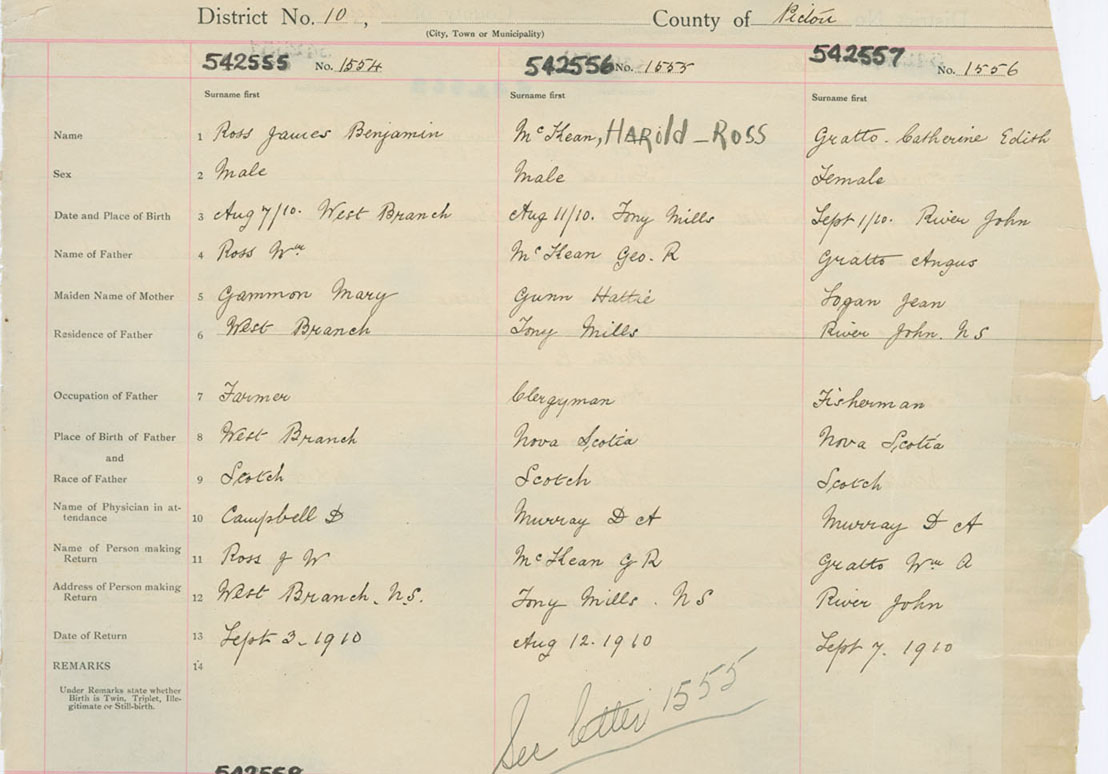 District No. 10, County of Pictou
(City, Town or Municipality)
542555 No. 1554 542556 No. 1555 542557 No. 1556
Surname first Surname first Surname first
Name 1 Ross James Benjamin McKean, HAROld - ROSS Gratto. Catherine Edith
Sex 2 Male Male Female
Date and Place of Birth 3 Aug 7/10. West Branch Aug 11/10. Tony Mills Sept 1/10. River John
Name of Father 4 Ross Wm McKean Geo. R Gratto Angus
Maiden Name of Mother 5 Gammon Mary Gunn Hattie Logan Jean
Residence of Father 6 West Branch Tony Mills River John. N S
Occupation of Father 7 Farmer Clergyman Fisherman
Place of Birth of Father 8 West Branch Nova Scotia Nova Scotia
and
Race of Father 9 Scotch Scotch Scotch
Name of Physician in at-
tendance 10 Campbell D Murray D A Murray D A
Name of Person making
Return 11 Ross J W McKean G R Gratto Wm A
Address of Person making
Return 12 West Branch, N.S. Tony Mills. N S River John
Date of Return 13 Sept 3 - 1910 Aug 12. 1910 Sept 7. 1910
REMARKS 14
Under Remarks state whether
Birth is Twin, Triplet, Ille-
gitimate or Still-birth.
See letter 1555
542558